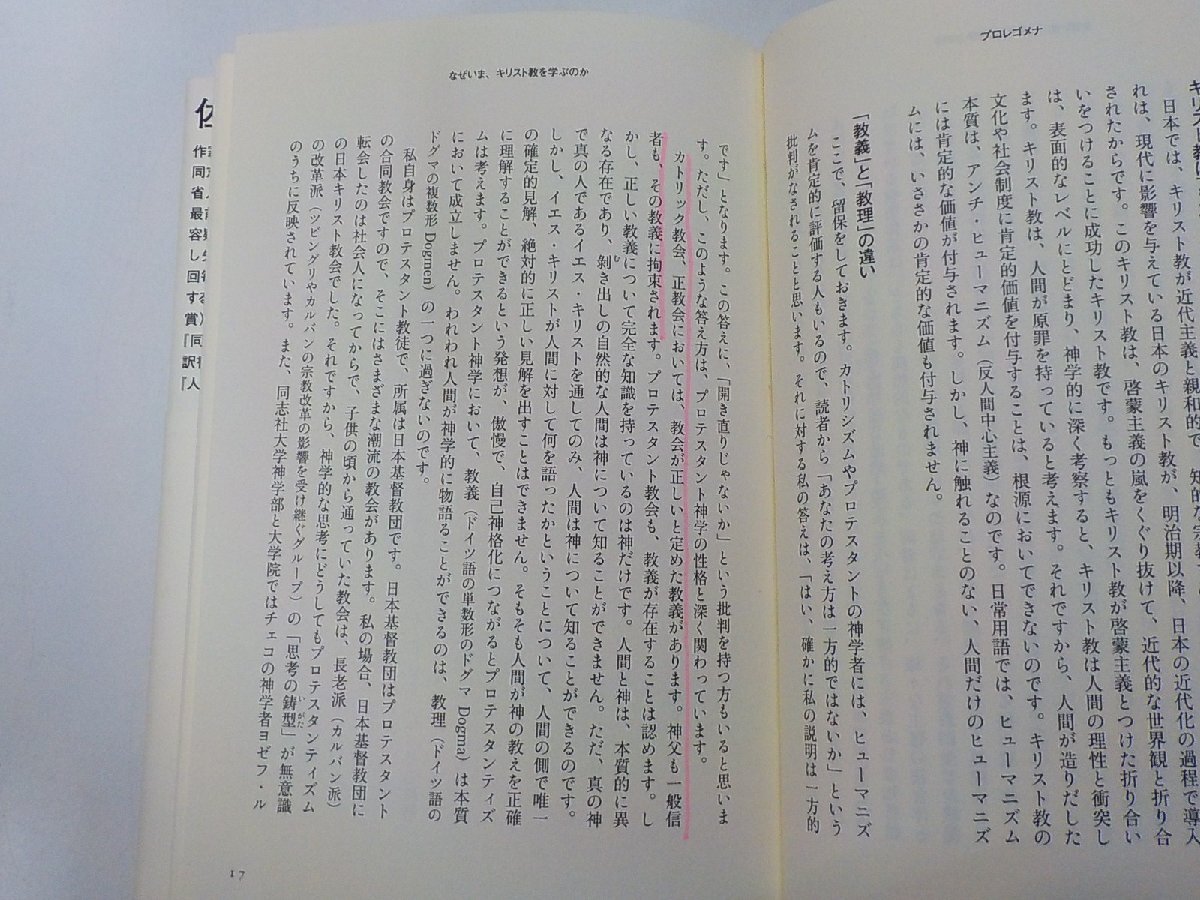 プロレゴメナ
日本では、キリスト教は
れは、現代に影響を与えている日本のキリスト教が、明治期以降、日本の近代化の過程で導入
されたからです。このキリスト教は、啓蒙主義の嵐をくぐり抜けて、近代的な世界観と折り合
いをつけることに成功したキリスト教です。もっともキリスト教が啓蒙主義とつけた折り合い
は、表面的なレベルにとどまり、神学的に深く考察すると、キリスト教は人間の理性と衝突し
ます。キリスト教は、人間が原罪を持っていると考えます。それですから、人間が造りだした
文化や社会制度に肯定的価値を付与することは、根源においてできないのです。キリスト教の
本質は、アンチ・ヒューマニズム（反人間中心主義）なのです。日常用語では、ヒューマニズム
には肯定的な価値が付与されます。しかし、神に触れることのない、人間だけのヒューマニズ
ムには、いささかの肯定的な価値も付与されません。
「教義」と「教理」の違い
ここで、留保をしておきます。カトリシズムやプロテスタントの神学者には、ヒューマニズ
ムを肯定的に評価する人もいるので、読者から「あなたの考え方は一方的ではないか」という
批判がなされることと思います。それに対する私の答えは、「はい、確かに私の説明は一方的
なぜいま、キリスト教を学ぶのか
です」となります。この答えに、「開き直りじゃないか」という批判を持つ方もいると思いま
す。ただし、このような答え方は、プロテスタント神学の性格と深く関わっています。
カトリック教会、正教会においては、教会が正しいと定めた教義があります。神父も一般信
者も、その教義に拘束されます。プロテスタント教会も、教義が存在することは認めます。し
かし、正しい教義について完全な知識を持っているのは神だけです。人間と神は、本質的に異
なる存在であり、剝き出しの自然的な人間は神について知ることができません。ただ、真の神
で真の人であるイエス・キリストを通してのみ、人間は神について知ることができるのです。
しかし、イエス・キリストが人間に対して何を語ったかということについて、人間の側で唯一
の確定的見解、絶対的に正しい見解を出すことはできません。そもそも人間が神の教えを正確
に理解することができるという発想が、傲慢で、自己神格化につながるとプロテスタンティズ
ムは考えます。プロテスタント神学において、教義（ドイツ語の単数形のドグマ Dogma）は本質
において成立しません。われわれ人間が神学的に物語ることができるのは、教理（ドイツ語の
ドグマの複数形 Dogmen）の一つに過ぎないのです。
私自身はプロテスタント教徒で、所属は日本基督教団です。日本基督教団はプロテスタント
の合同教会ですので、そこにはさまざまな潮流の教会があります。私の場合、日本基督教団に
転会したのは社会人になってからで、子供の頃から通っていた教会は、長老派（カルバン派）
の日本キリスト教会でした。それですから、神学的な思考にどうしてもプロテスタンティズム
の改革派（ツビングリやカルバンの宗教改革の影響を受け継ぐグループ）の「思考の鋳型」が無意識
のうちに反映されています。また、同志社大学神学部と大学院ではチェコの神学者ヨゼフ・ル
17